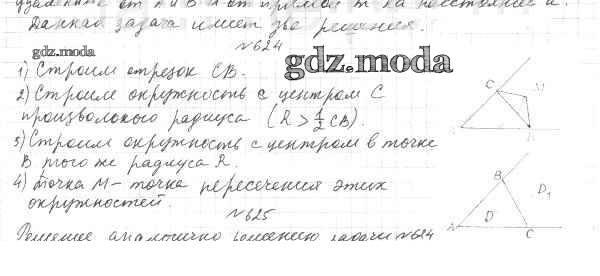 удалённые от A и B и от прямой m на расстояние
Данная задача имеет две решения.
№624
gdz.moda
gdz.moda
1) Строим отрезок CB.
2) Строим окружность с центром C
произвольного радиуса (R > 1/2 CB).
3) Строим окружность с центром в точке
B того же радиуса R.
4) Точка M – точка пересечения этих
окружностей.
C M
A B
№625
B D₁
A D C
Решение аналогично решению задачи №624